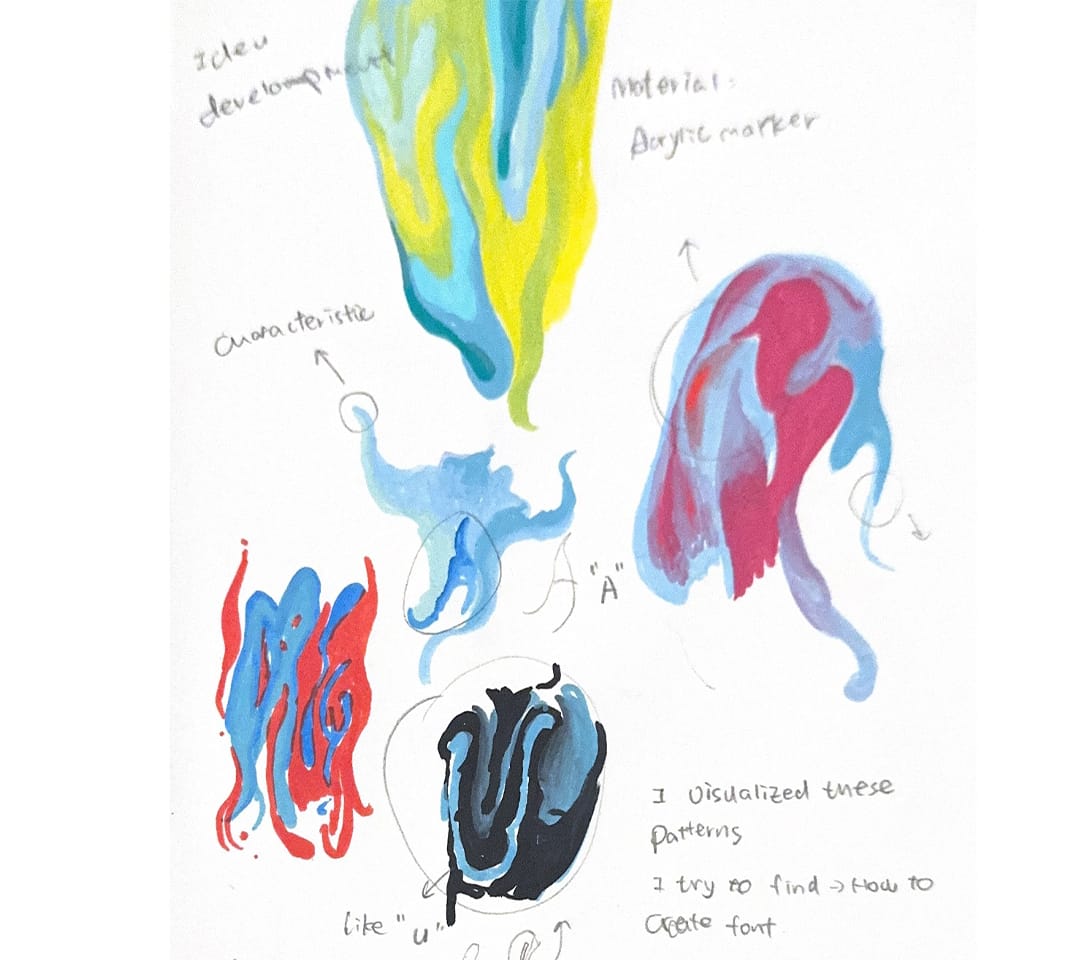 Idea
development
Material:
Acrylic marker
Characteristic
"A"
like "u"
I visualized these
patterns
I try to find → How to
create font